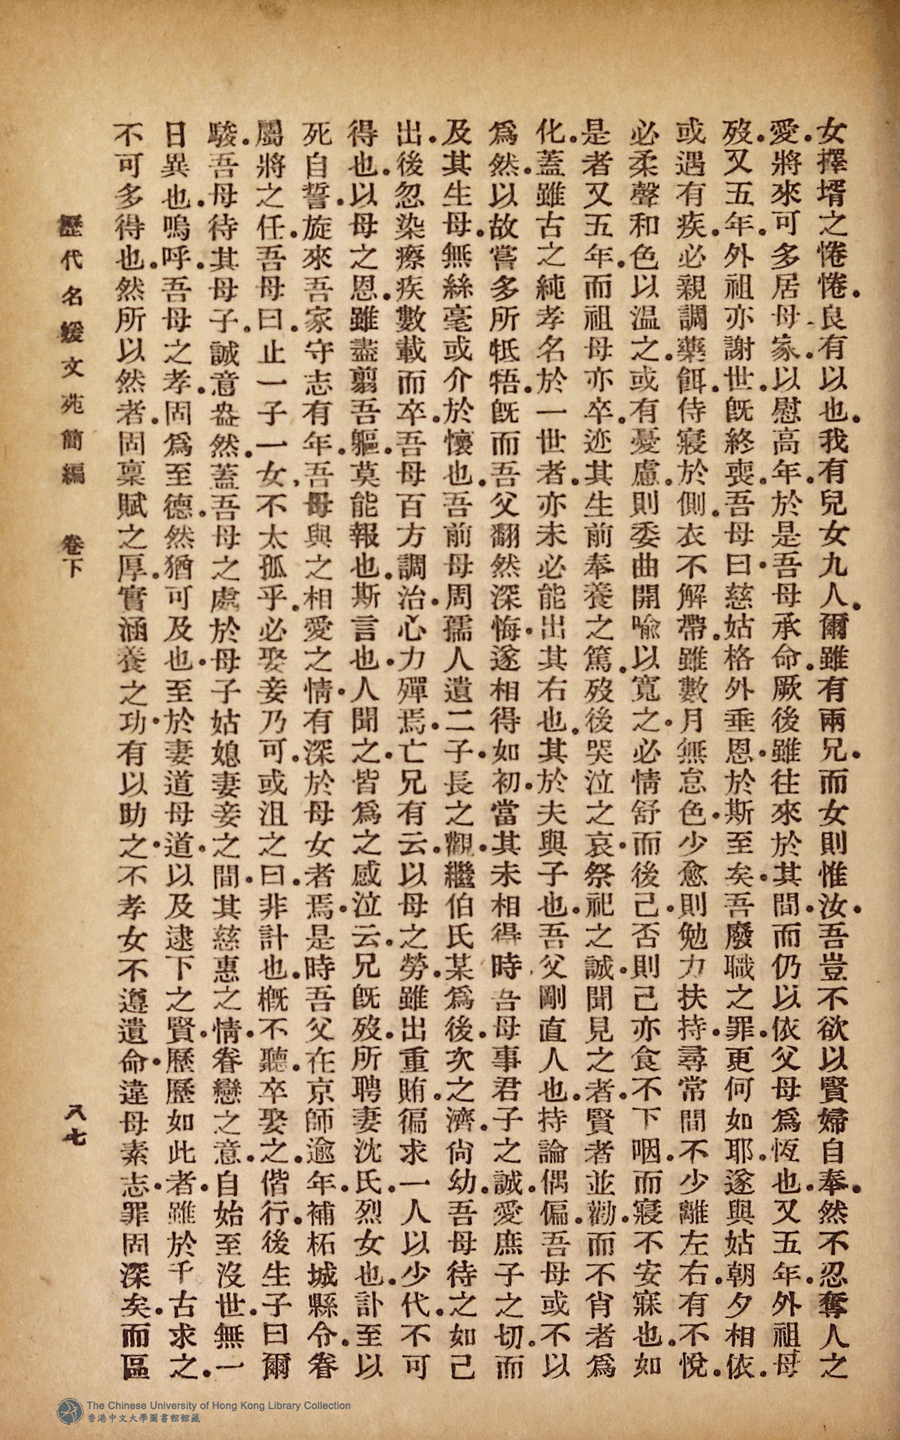 女擇壻之惓惓良有以也我有兒女九人爾雖有兩兄而女則惟汝吾豈不欲以賢婦自奉然不忍奪人之
愛將來可多居母家以慰高年於是吾母承命厥後雖往來於其間而仍以依父母爲恆也又五年外祖母
歿又五年外祖亦謝世旣終喪吾母曰慈姑格外垂恩於斯至矣吾廢職之罪更何如耶遂與姑朝夕相依
或遇有疾必親調藥餌侍寢於側衣不解帶雖數月無怠色少愈則勉力扶持尋常間不少離左右有不悅
必柔聲和色以温之或有憂慮則委曲開喻以寬之必情舒而後已否則己亦食不下咽而寢不安寐也如
是者又五年而祖母亦卒迹其生前奉養之篤歿後哭泣之哀祭祀之誠聞見之者賢者並勸而不肖者爲
化蓋雖古之純孝名於一世者亦未必能出其右也其於夫與子也吾父剛直人也持論偶偏吾母或不以
爲然以故嘗多所牴牾旣而吾父翻然深悔遂相得如初當其未相得時吾母事君子之誠愛庶子之切而
及其生母無絲毫或介於懷也吾前母周孺人遺二子長之觀繼伯氏某爲後次之濟尙幼吾母待之如己
出後忽染瘵疾數載而卒吾母百方調治心力殫焉亡兄有云以母之勞雖出重賄徧求一人以少代不可
得也以母之恩雖蓋翦吾軀莫能報也斯言也人聞之皆爲之感泣云兄旣歿所聘妻沈氏烈女也訃至以
死自誓旋來吾家守志有年吾母與之相愛之情有深於母女者焉是時吾父在京師逾年補柘城縣令眷
屬將之任吾母曰止一子一女不太孤乎必娶妾乃可或沮之曰非計也概不聽卒娶之偕行後生子曰爾
駿吾母待其母子誠意盎然蓋吾母之處於母子姑媳妻妾之間其慈惠之情眷戀之意自始至沒世無一
日異也嗚呼吾母之孝固爲至德然猶可及也至於妻道母道以及逮下之賢歷歷如此者雖於千古求之
不可多得也然所以然者固稟賦之厚實涵養之功有以助之不孝女不遵遺命違母素志罪固深矣而區
歷代名媛文苑簡編 卷下 八七
The Chinese University of Hong Kong Library Collection
香港中文大學圖書館館藏